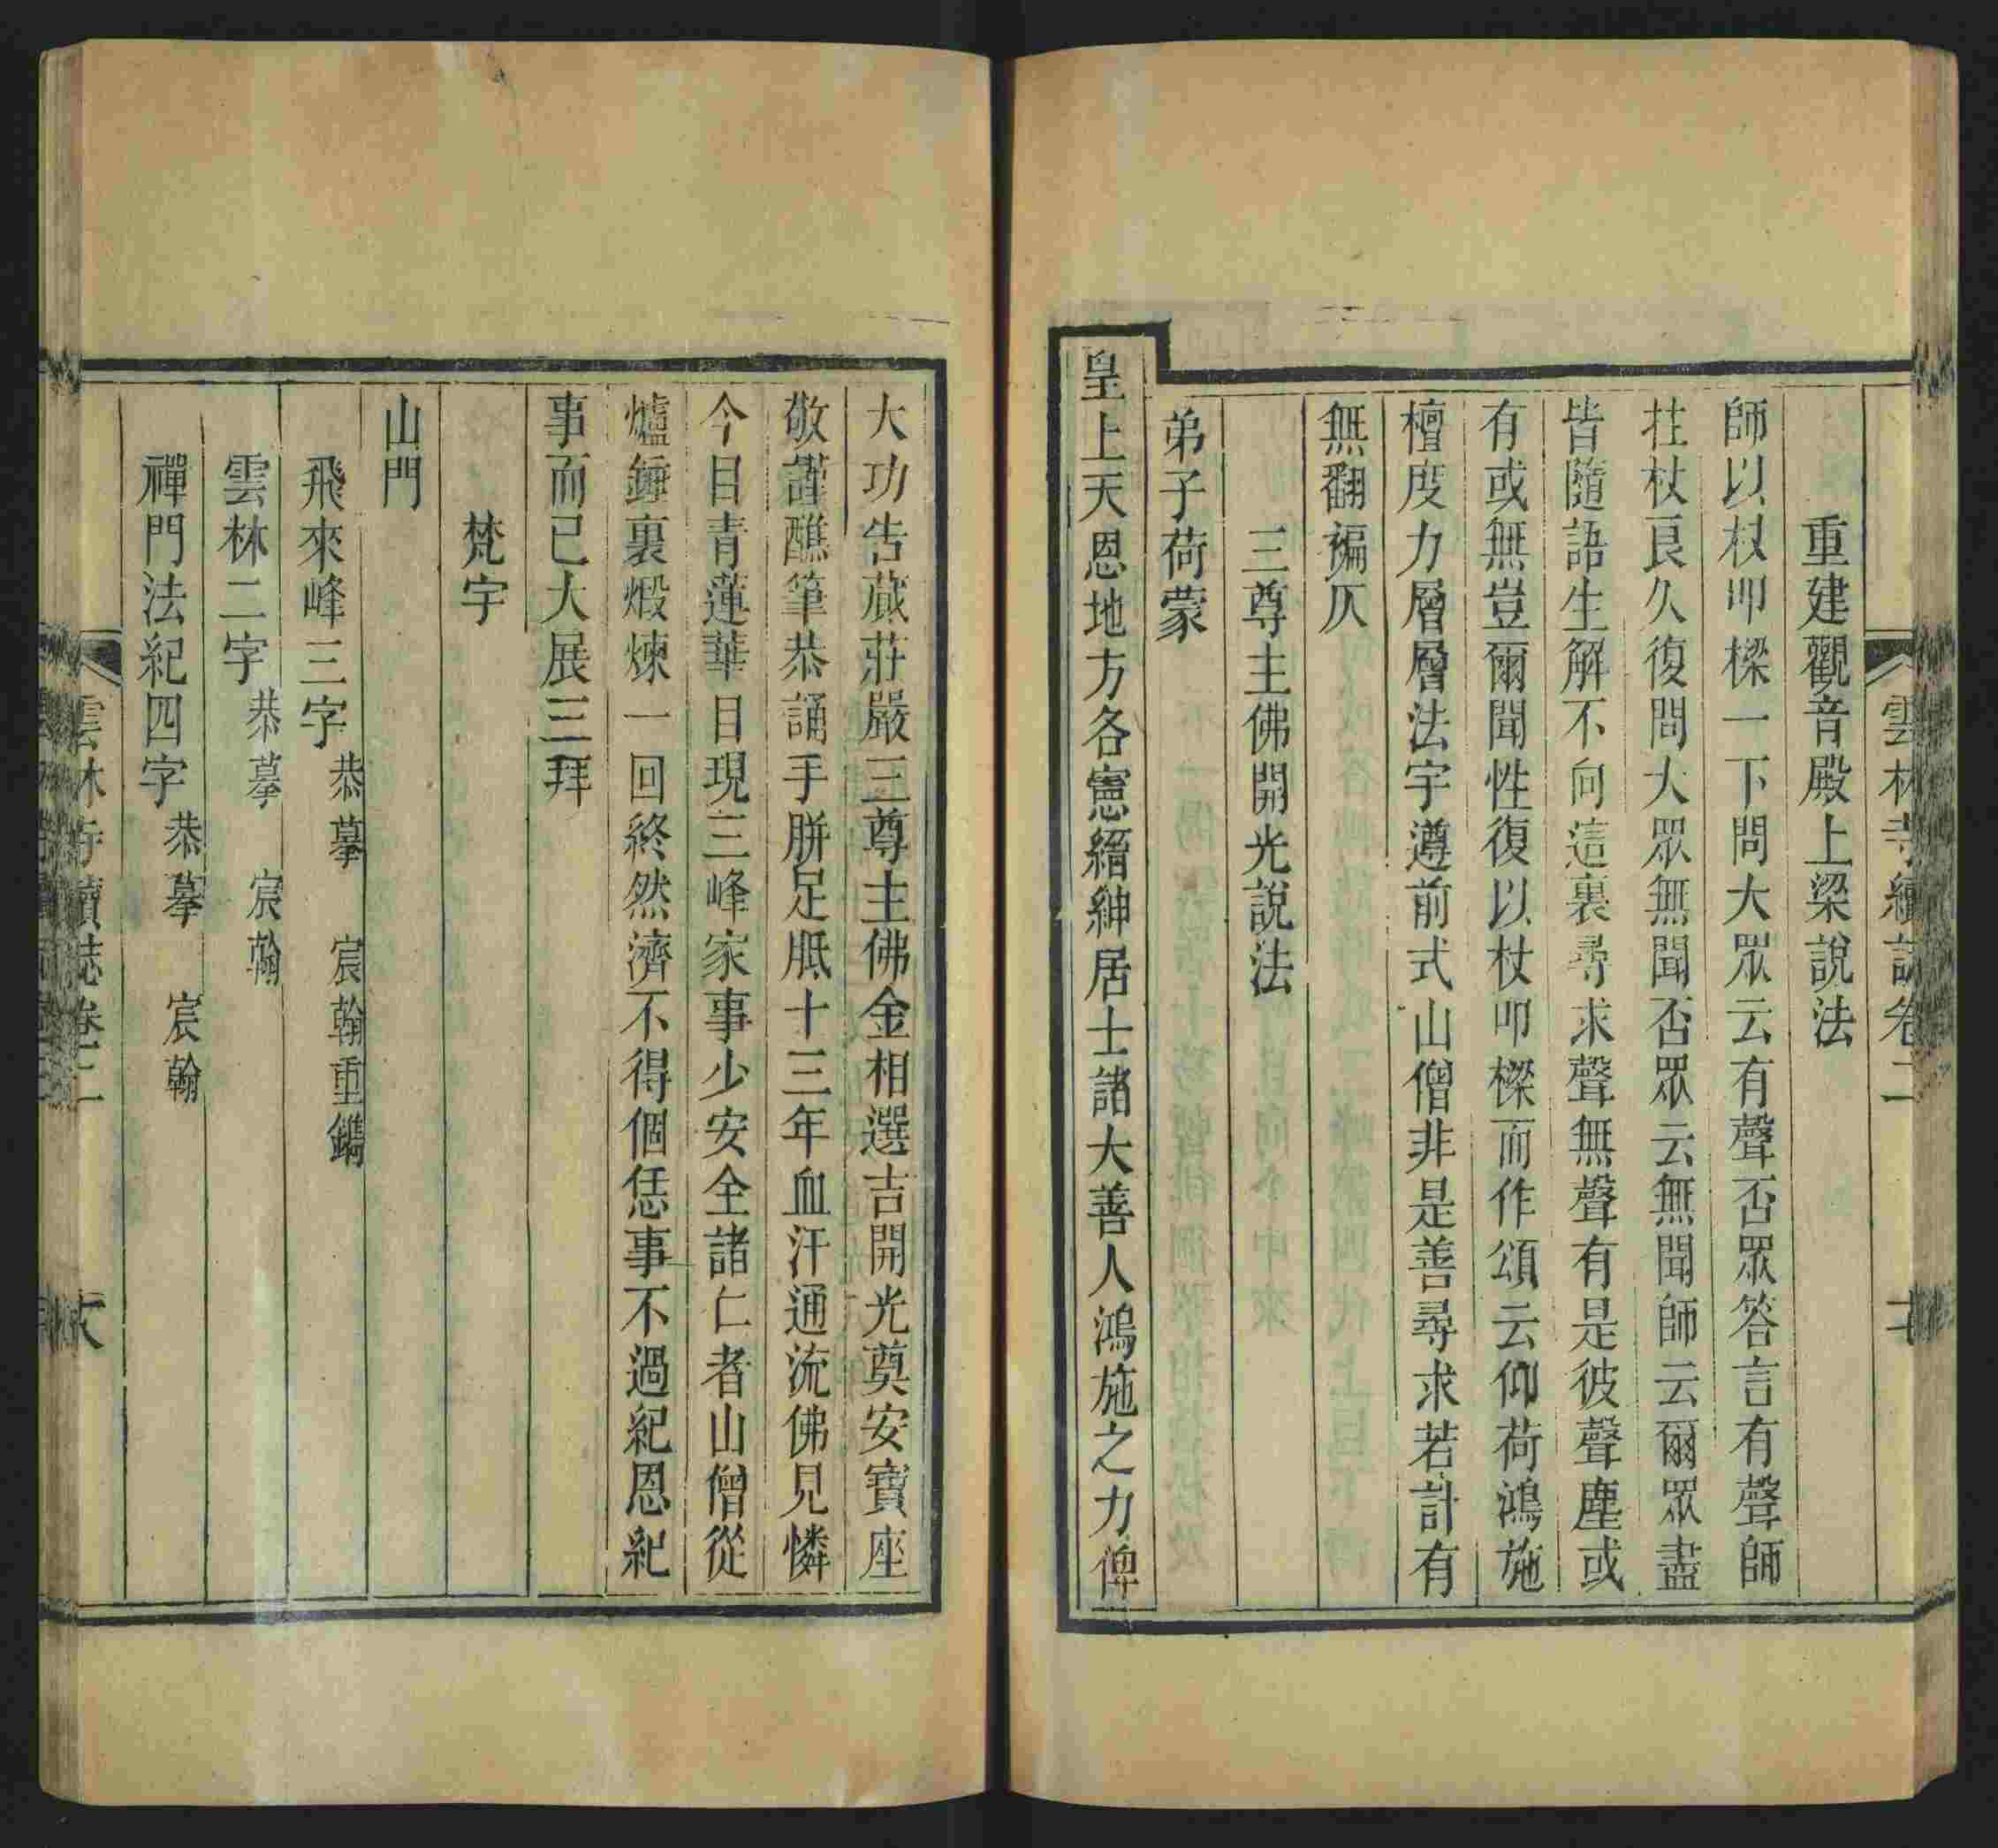 雲林寺續誌卷二
重建觀音殿上梁說法
師以杖叩樑一下問大眾云有聲否眾答言有聲師
拄杖良久復問大眾無聞否眾云無聞師云爾眾盡
皆隨語生解不向這裏尋求聲無聲有是彼聲塵或
有或無豈爾聞性復以杖叩樑而作頌云仰荷鴻施
檀度力層層法宇遵前式山僧非是善尋求若計有
無翻褊仄
三尊主佛開光說法
弟子荷蒙
皇上天恩地方各憲縉紳居士諸大善人鴻施之力俾
大功吿蕆莊嚴三尊主佛金相選吉開光奠安寶座
敬謹醮筆恭誦手胼足胝十三年血汗通流佛見憐
今日青蓮華目現三峰家事少安全諸仁者山僧從
爐錘裏煅煉一回終然濟不得個恁事不過紀恩紀
事而已大展三拜
梵字
山門
飛來峰三字 恭摹 宸翰重鐫
雲林二字 恭摹 宸翰
禪門法紀四字 恭摹 宸翰
雲林寺續誌卷二